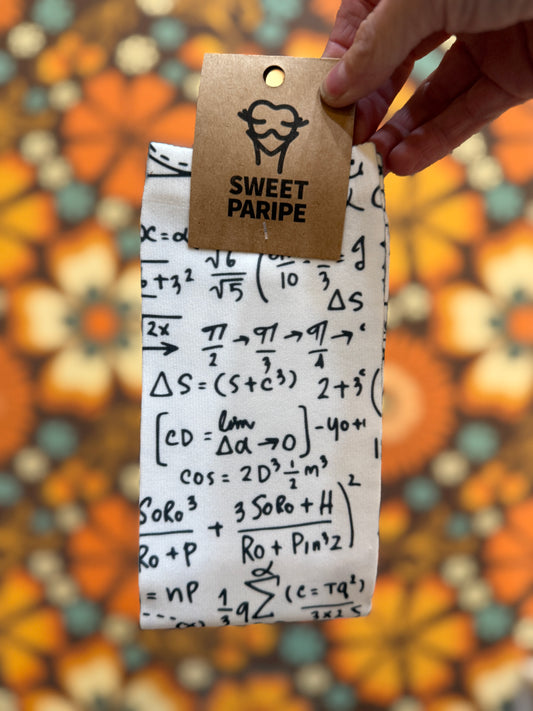 SWEET
PARIPE
√6
√5
10
3
ΔS
2x
π/2 → π/3 → π/4 →
ΔS = (S+C³) 2+3
[CD = lim Δα → 0] -40+1
COS = 2D³ - 1/2 m³
SoRo³/Ro + P + (3 SoRo + H)/(Ro + Pin³2))²
= nP 1/3 q Σ (C = Tq²)
3x2 S